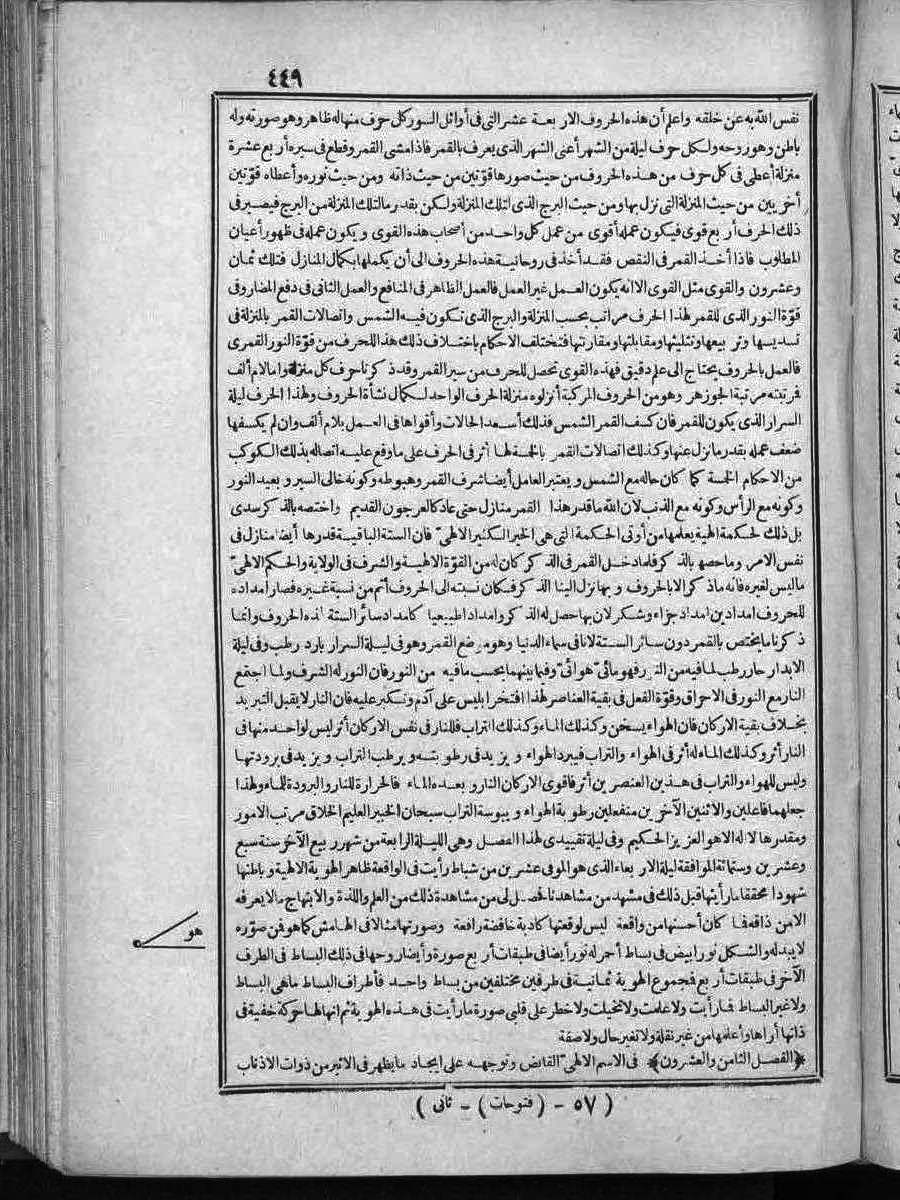 ٤٤٩
نفس الله به عن خلقه واعلم أن هذه الحروف الاربعة عشر التى فى أوائل السور كل حرف منها له ظاهر وهو صورته وله
باطن وهو روحه ولكل حرف ليلة من الشهر أعنى الشهر الذى يعرف بالقمر فاذا مشى القمر وقطع فى سيره أربع عشرة
منزلة أعطى فى كل حرف من هذه الحروف من حيث صورها قوّتين من حيث ذاته ومن حيث نوره وأعطاه قوّتين
أخريين من حيث المنزلة التى نزل بها ومن حيث البرج الذى لتلك المنزلة ولكن بقدر ما لتلك المنزلة من البرج فيصير فى
ذلك الحرف أربع قوى فيكون عمله أقوى من عمل كل واحد من أصحاب هذه القوى ويكون عمله فى ظهور أعيان
المطلوب فاذا أخذ القمر فى النقص فقد أخذ فى روحانية هذه الحروف الى أن يكملها بكمال المنازل فتلك ثمان
وعشرون والقوى مثل القوى الا انه يكون العمل غير العمل فالعمل الظاهر فى المنافع والعمل الثانى فى دفع المضار وفى
قوّة النور الذى للقمر لهذا الحرف مراتب بحسب المنزلة والبرج الذى تكون فيه الشمس واتصالات القمر بالمنزلة فى
تسديسها وتربيعها وتثليثها ومقابلتها ومقارنتها فتختلف الاحكام باختلاف ذلك هذا للحرف من قوّة النور القمرى
فالعمل بالحروف يحتاج الى علم دقيق فهذه القوى تحصل للحرف من سير القمر وقد ذكرنا حرف كل منزلة وامالام ألف
فرتبته مرتبة الجوزهر وهو من الحروف المركبة أنزلوه منزلة الحرف الواحد لكمال نشأة الحروف ولهذا الحرف ليلة
السرار الذى يكون للقمر فان كسف القمر الشمس فذلك أسعد الحالات وأقواها فى العمل بلام ألف وان لم يكسفها
ضعف عمله بقدر ما نزل عنها وكذلك اتصالات القمر بالخمسة لها أثر فى الحرف على ما وقع عليه اتصاله بذلك الكوكب
من الاحكام الخمسة كما كان حاله مع الشمس ويعتبر العامل أيضا شرف القمر وهبوطه وكونه خالى السير وبعيد النور
وكونه مع الرأس وكونه مع الذنب لان الله ما قدر هذا القمر منازل حتى عاد كالعرجون القديم واختصه بالذكر سدى
بل ذلك لحكمة الهية يعلمها من أوتى الحكمة التى هى الخير الكثير الالهىّ فان الستة الباقية قدرها أيضا منازل فى
نفس الامر وما خصها بالذكر فلما دخل القمر فى الذكر كان له من القوّة الالهية والشرف فى الولاية والحكم الالهىّ
ما ليس لغيره فانه ما ذكر الا بالحروف وبها نزل الينا الذكر فكان نسبته الى الحروف أتم من نسبة غيره فصار امداده
للحروف امدادين امداد جزاء وشكر لان بها حصل له الذكر وامدادا طبيعيا كامداد سائر الستة لهذه الحروف وانما
ذكرنا ما يختص بالقمر دون سائر الستة لانا فى سماء الدنيا وهو موضع القمر وهو فى ليلة السرار بارد رطب وفى ليلة
الابدار حار رطب لما فيه من النور فهو مائىّ هوائىّ وفيما بينهما بحسب ما فيه من النور فان النور له الشرف ولما اجتمع
النار مع النور فى الاحراق وقوّة الفعل فى بقية العناصر لهذا افتخر ابليس على آدم وتكبر عليه فان النار لا يقبل التبريد
بخلاف بقية الاركان فان الهواء يسخن وكذلك الماء وكذلك التراب فللنار فى نفس الاركان أثر ليس لواحد منها فى
النار أثر وكذلك الماء له أثر فى الهواء والتراب فيبرد الهواء ويزيد فى رطوبته ويرطب التراب ويزيد فى برودتها
وليس للهواء والتراب فى هذين العنصرين أثر فاقوى الاركان النار وبعده الماء فالحرارة للنار والبرودة للماء ولهذا
جعلهما فاعلين والاثنين الآخرين منفعلين رطوبة الهواء ويبوسة التراب سبحان الخبير العليم الخلاق مرتب الامور
ومقدرها لا اله الا هو العزيز الحكيم وفى ليلة تقييدى لهذا الفصل وهى الليلة الرابعة من شهر ربيع الآخر سنة سبع
وعشرين وستمائة الموافقة ليلة الاربعاء الذى هو الموفى عشرين من شباط رأيت فى الواقعة ظاهر الهوية الالهية وباطنها
شهودا محققا ما رأيتها قبل ذلك فى مشهد من مشاهدنا فحصل لى من مشاهدة ذلك من العلم واللذة والابتهاج ما لا يعرفه
الا من ذاقه فما كان أحسنها من واقعة ليس لوقعتها كاذبة خافضة رافعة وصورتها مثالا فى الهامش كما هو فمن صوّره
لا يبدله والشكل نور أبيض فى بساط أحمر له نور أيضا فى طبقات أربع صورة وأيضا روحها فى ذلك البساط فى الطرف
الآخر فى طبقات أربع فمجموع الهوية ثمانية فى طرفين مختلفين من بساط واحد فأطراف البساط ما هى البساط
ولا غير البساط فما رأيت ولا علمت ولا تخيلت ولا خطر على قلبى صورة ما رأيت فى هذه الهوية ثم انها لها حركة خفية فى
ذاتها أراها وأعلمها من غير نقلة ولا تغير حال ولا صفة
﴿الفصل الثامن والعشرون﴾ فى الاسم الالهىّ القابض وتوجهه على ايجاد ما يظهر فى الاثير من ذوات الاذناب
هو
( ٥٧ - (فتوحات) - ثانى )